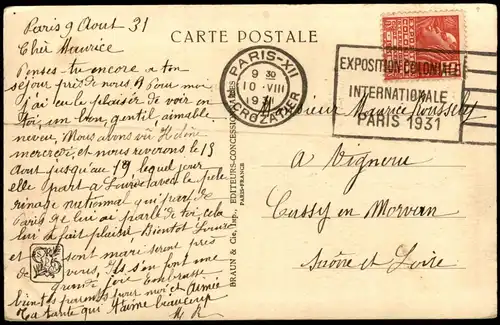 CARTE POSTALE
Paris 9 Aout 31
Cher Maurice
Penses tu encore a ton
séjour près de nous. Pour moi
j'ai eu le plaisir de voir en
toi, un bon, gentil, aimable
neveu, Nous avons vu
mercredi, et nous reverrons le 13
Aout jusqu'au 19 lequel jour
elle part a Lourdes avec le pele
rinage national qui part de
Paris de lui ai parlé de toi cela
lui fait plaisir Bientot Louis
et sont mari seront près
de vous, ils s'en font une
grande joie Embrasse
bien tes parents pour moi et Aimée
Ta tante qui t'aime beaucoup
M R
BRAUN & Cie, Imp., EDITEURS-CONCESSIONNAIRES
PARIS-FRANCE
PARIS-XII
9 30
10 -VIII
1931
CROZATIER
EXPOSITION COLONIALE
INTERNATIONALE
PARIS 1931
Monsieur Maurice
a Vigneru
Cussy en Morvan
Saône et Loire